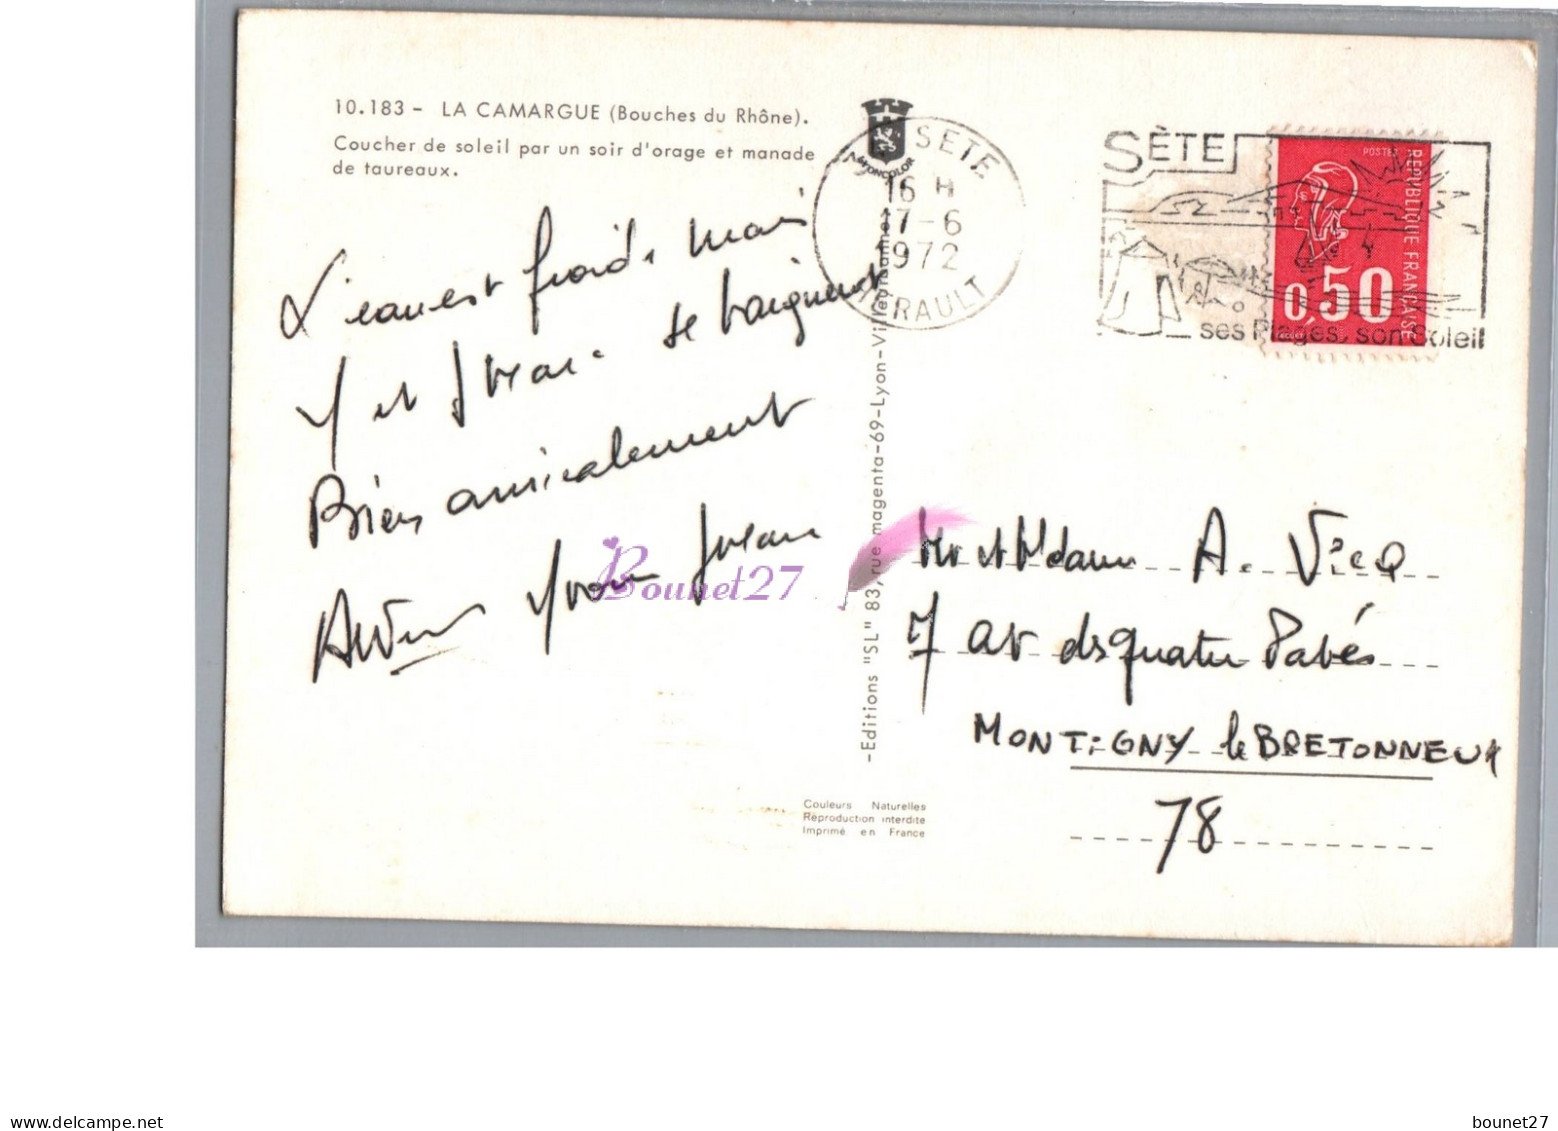 10.183 - LA CAMARGUE (Bouches du Rhône).
Coucher de soleil par un soir d'orage et manade
de taureaux.
L'eau est froide mais
Y et Jean se baignent
Bien amicalement
Yvonne Jean
LYONCOLOR
SETE
16 H
17-6
1972
HERAULT
SÈTE
ses Plages, son Soleil
POSTES
REPUBLIQUE FRANÇAISE
0,50
-Editions "SL" 83, rue magenta-69-Lyon-Villeurbanne
Mr et Mdame A. Vicq
7 av des quatre Pavés
MONTIGNY le BRETONNEUX
78
Couleurs Naturelles
Reproduction interdite
Imprimé en France
Bounet27
delcampe.net
bounet27